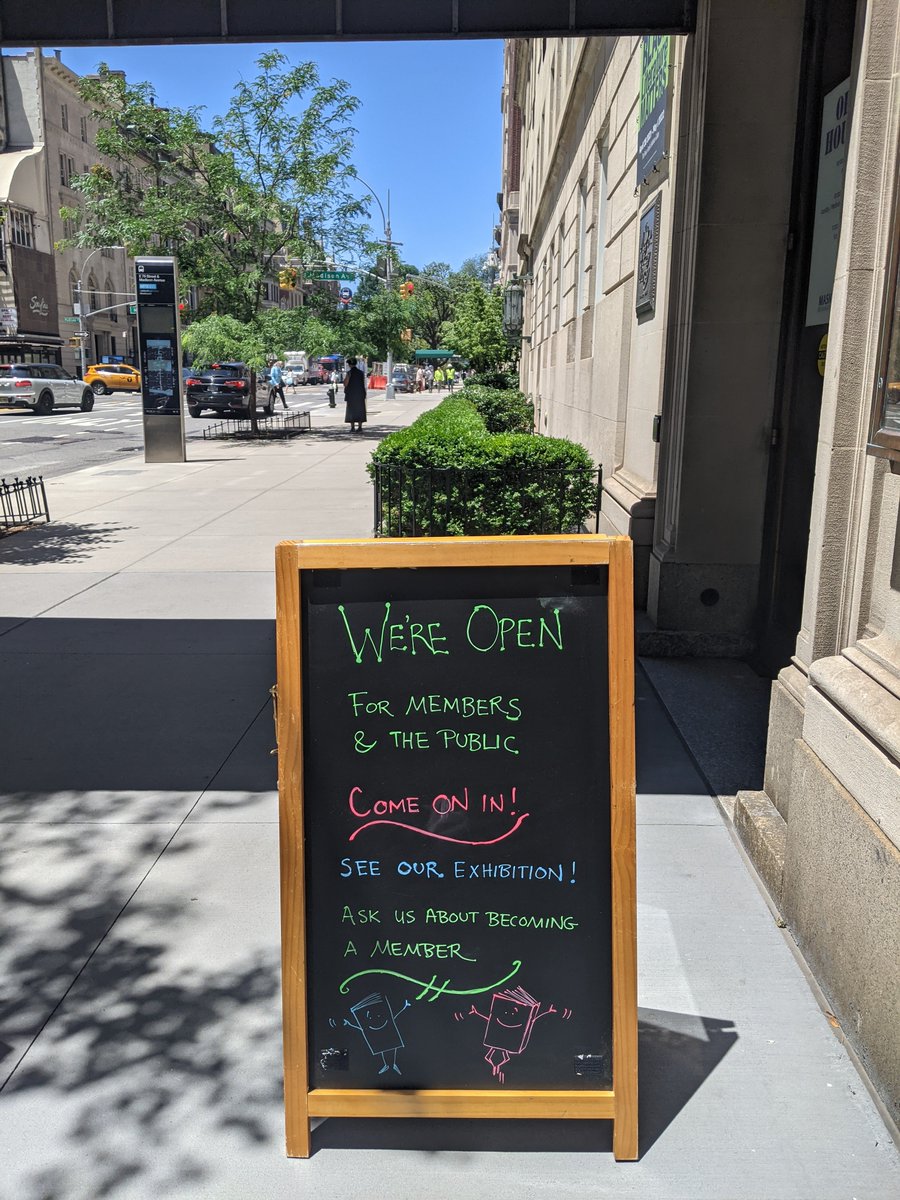 WE'RE OPEN
FOR MEMBERS
& THE PUBLIC
COME ON IN!
SEE OUR EXHIBITION!
ASK US ABOUT BECOMING
A MEMBER
Madison Av
E 79 Street &
Madison Avenue